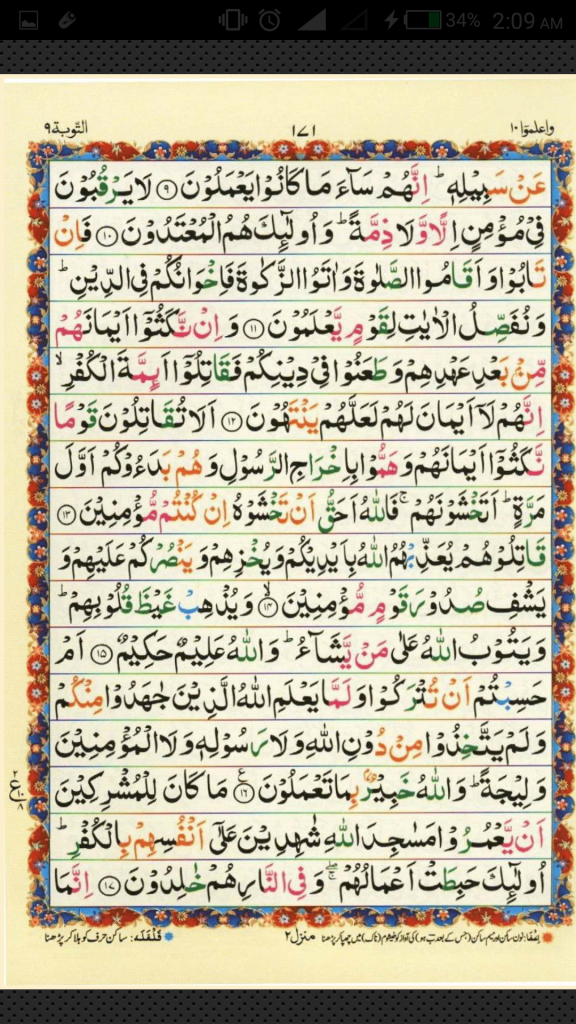 34% 2:09 AM
واعلموٓا ١٠ ١٧١ التّوبة ٩
عَنْ سَبِيْلِهٖؕ اِنَّهُمْ سَآءَ مَا كَانُوْا يَعْمَلُوْنَ ۹ لَا يَرْقُبُوْنَ
فِيْ مُؤْمِنٍ اِلًّا وَّلَا ذِمَّةًؕ وَاُولٰٓئِكَ هُمُ الْمُعْتَدُوْنَ ۱۰ فَاِنْ
تَابُوْا وَاَقَامُوا الصَّلٰوةَ وَاٰتَوُا الزَّكٰوةَ فَاِخْوَانُكُمْ فِي الدِّيْنِؕ
وَنُفَصِّلُ الْاٰيٰتِ لِقَوْمٍ يَّعْلَمُوْنَ ۱۱ وَاِنْ نَّكَثُوْٓا اَيْمَانَهُمْ
مِّنْۢ بَعْدِ عَهْدِهِمْ وَطَعَنُوْا فِيْ دِيْنِكُمْ فَقَاتِلُوْٓا اَئِمَّةَ الْكُفْرِۙ
اِنَّهُمْ لَآ اَيْمَانَ لَهُمْ لَعَلَّهُمْ يَنْتَهُوْنَ ۱۲ اَلَا تُقَاتِلُوْنَ قَوْمًا
نَّكَثُوْٓا اَيْمَانَهُمْ وَهَمُّوْا بِاِخْرَاجِ الرَّسُوْلِ وَهُمْ بَدَءُوْكُمْ اَوَّلَ
مَرَّةٍؕ اَتَخْشَوْنَهُمْۚ فَاللّٰهُ اَحَقُّ اَنْ تَخْشَوْهُ اِنْ كُنْتُمْ مُّؤْمِنِيْنَ ۱۳
قَاتِلُوْهُمْ يُعَذِّبْهُمُ اللّٰهُ بِاَيْدِيْكُمْ وَيُخْزِهِمْ وَيَنْصُرْكُمْ عَلَيْهِمْ وَ
يَشْفِ صُدُوْرَ قَوْمٍ مُّؤْمِنِيْنَۙ ۱۴ وَيُذْهِبْ غَيْظَ قُلُوْبِهِمْؕ
وَيَتُوْبُ اللّٰهُ عَلٰى مَنْ يَّشَآءُؕ وَاللّٰهُ عَلِيْمٌ حَكِيْمٌ ۱۵ اَمْ
حَسِبْتُمْ اَنْ تُتْرَكُوْا وَلَمَّا يَعْلَمِ اللّٰهُ الَّذِيْنَ جٰهَدُوْا مِنْكُمْ
وَلَمْ يَتَّخِذُوْا مِنْ دُوْنِ اللّٰهِ وَلَا رَسُوْلِهٖ وَلَا الْمُؤْمِنِيْنَ
وَلِيْجَةًؕ وَاللّٰهُ خَبِيْرٌۢ بِمَا تَعْمَلُوْنَ ۱۶ مَا كَانَ لِلْمُشْرِكِيْنَ
اَنْ يَّعْمُرُوْا مَسٰجِدَ اللّٰهِ شٰهِدِيْنَ عَلٰٓى اَنْفُسِهِمْ بِالْكُفْرِؕ
اُولٰٓئِكَ حَبِطَتْ اَعْمَالُهُمْۖۚ وَفِي النَّارِ هُمْ خٰلِدُوْنَ ۱۷ اِنَّمَا
اِخفَا: نون ساکن اور میم ساکن (جس کے بعد ب ہو) کی آواز کو خیشوم (ناک) میں چھپا کر پڑھنا منزل ۲ قَلْقَلَہ: ساکن حرف کو ہلا کر پڑھنا